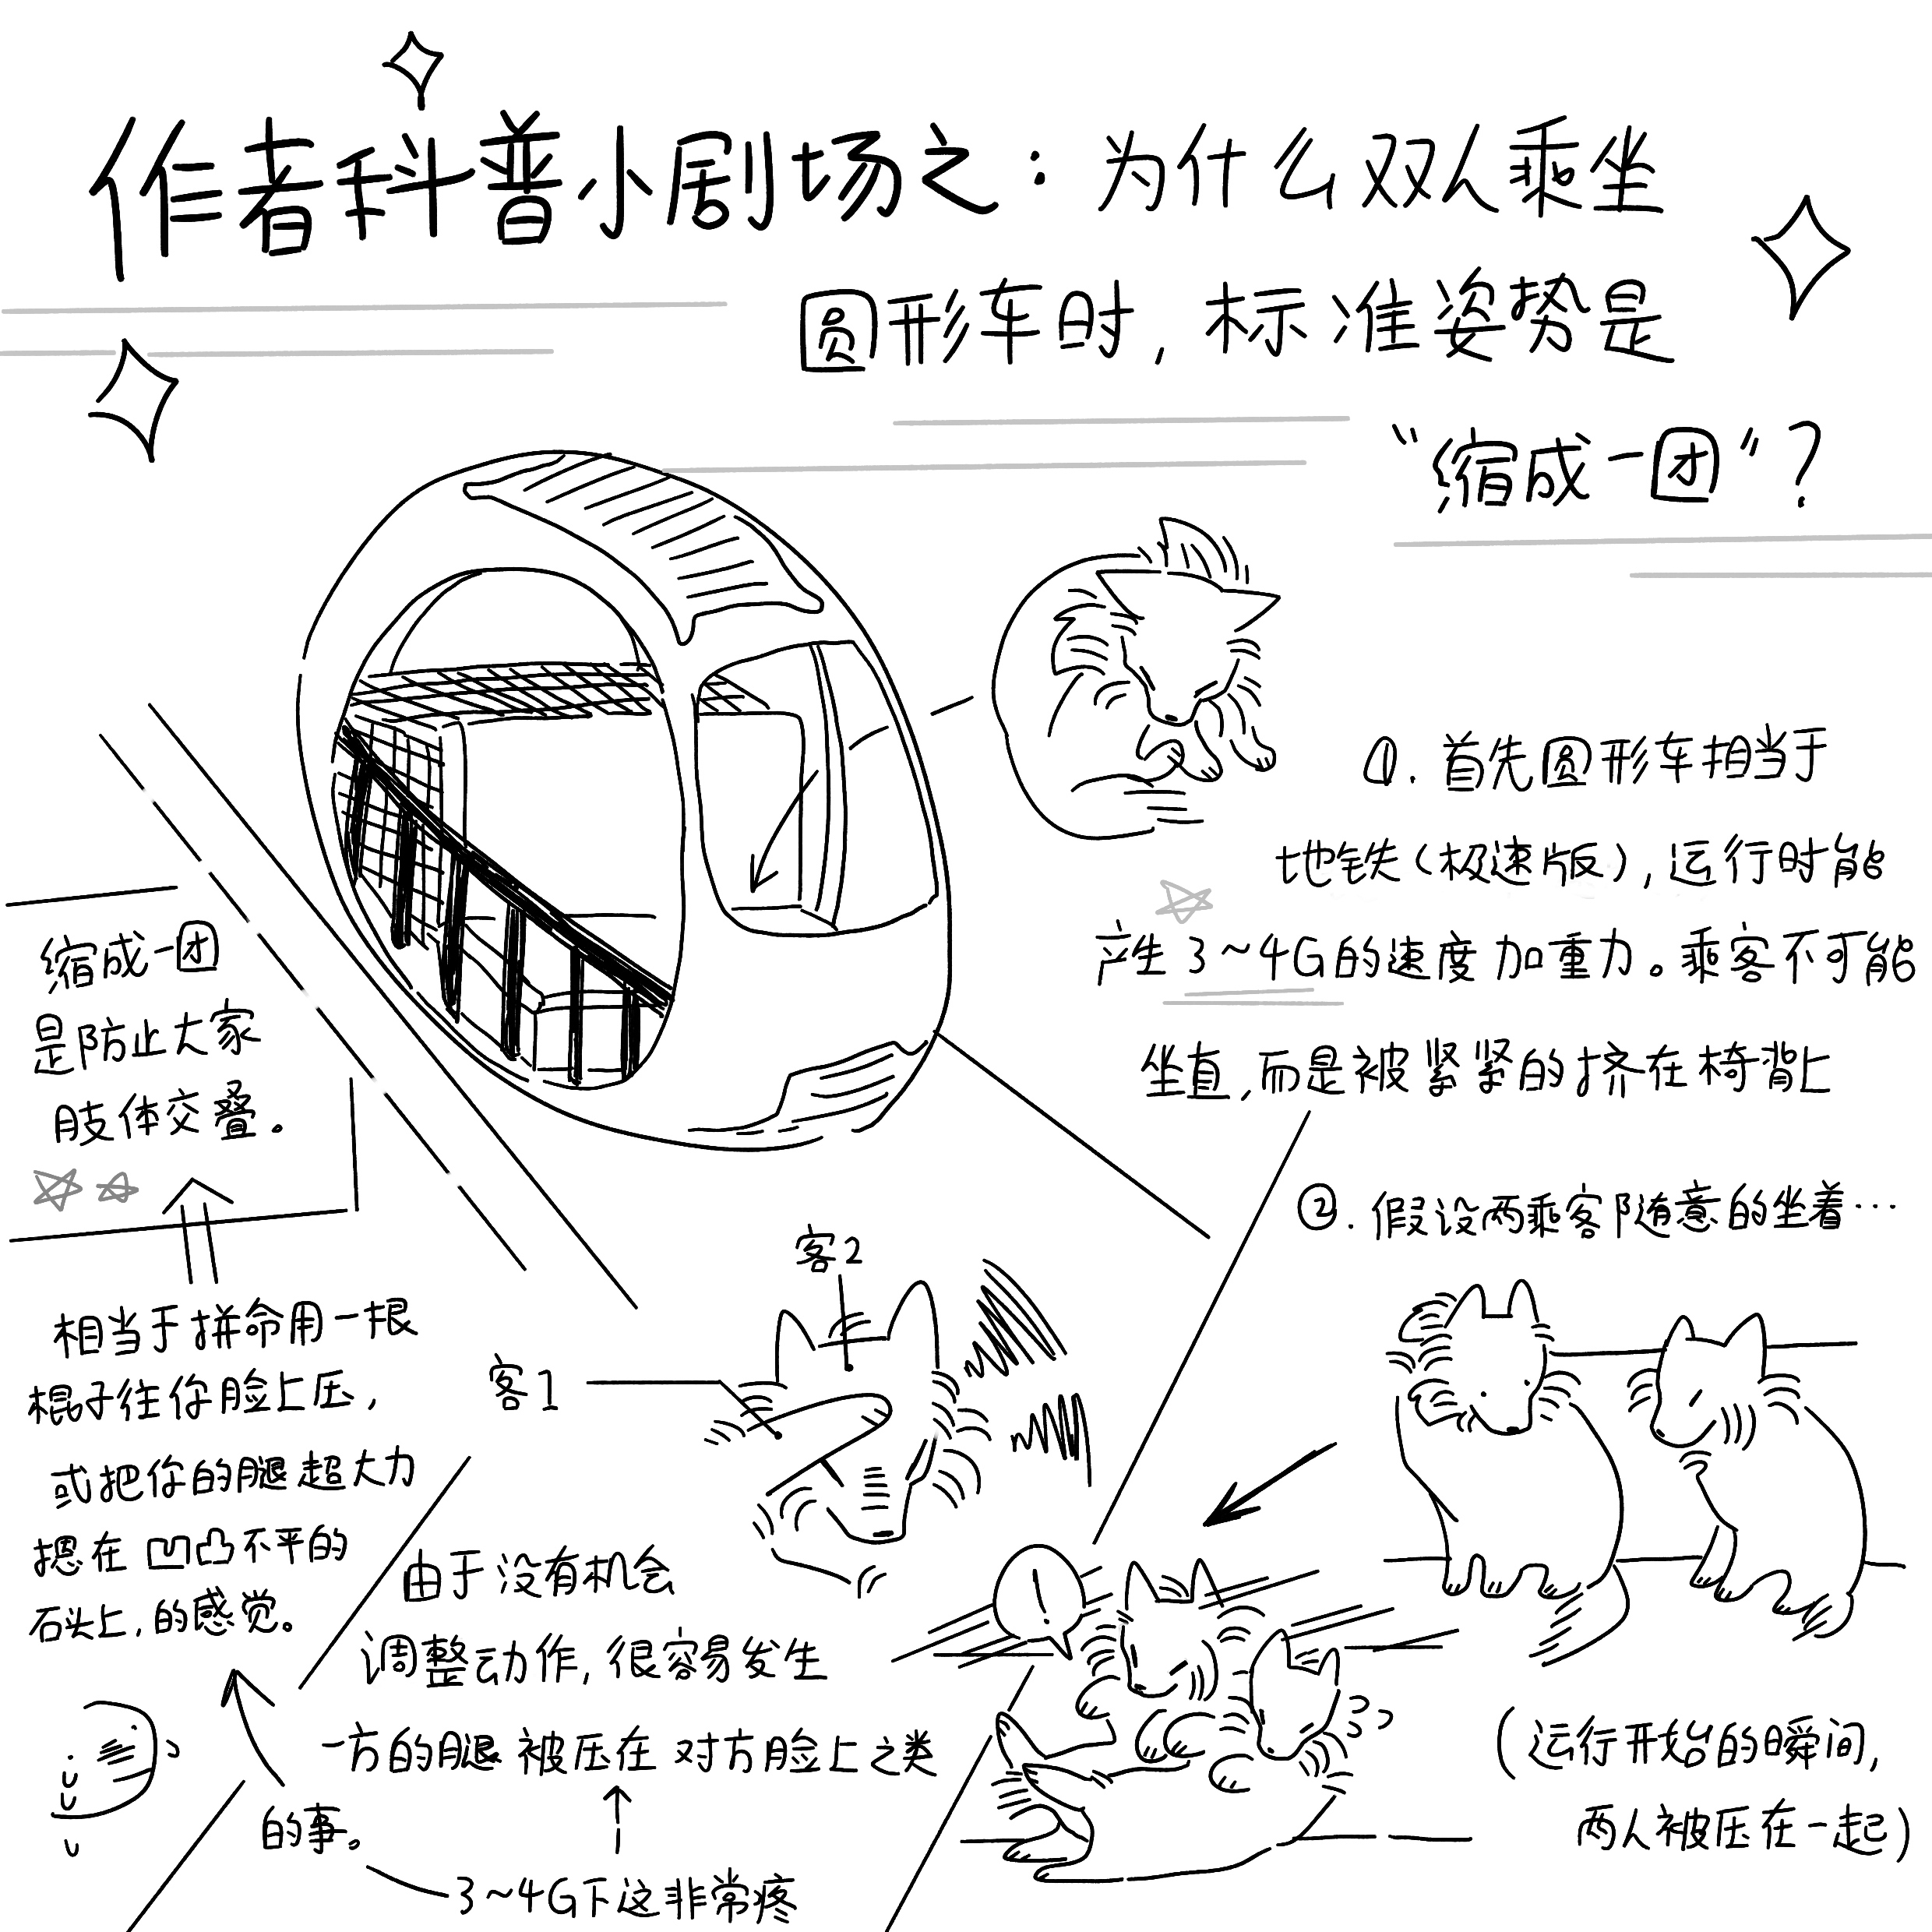 作者科普小剧场之：为什么双人乘坐
圆形车时，标准姿势是
“缩成一团”？
①. 首先圆形车相当于
地铁（极速版），运行时能
产生 3~4G的速度加重力。乘客不可能
坐直，而是被紧紧的挤在椅背上
②. 假设两乘客随意的坐着…
（运行开始的瞬间，
两人被压在一起）
!
客2
客1
由于没有机会
调整动作，很容易发生
一方的腿被压在对方脸上之类
的事。
3~4G下这非常疼
相当于拼命用一根
棍子往你脸上压，
或把你的腿超大力
摁在凹凸不平的
石头上，的感觉。
缩成一团
是防止大家
肢体交叠。